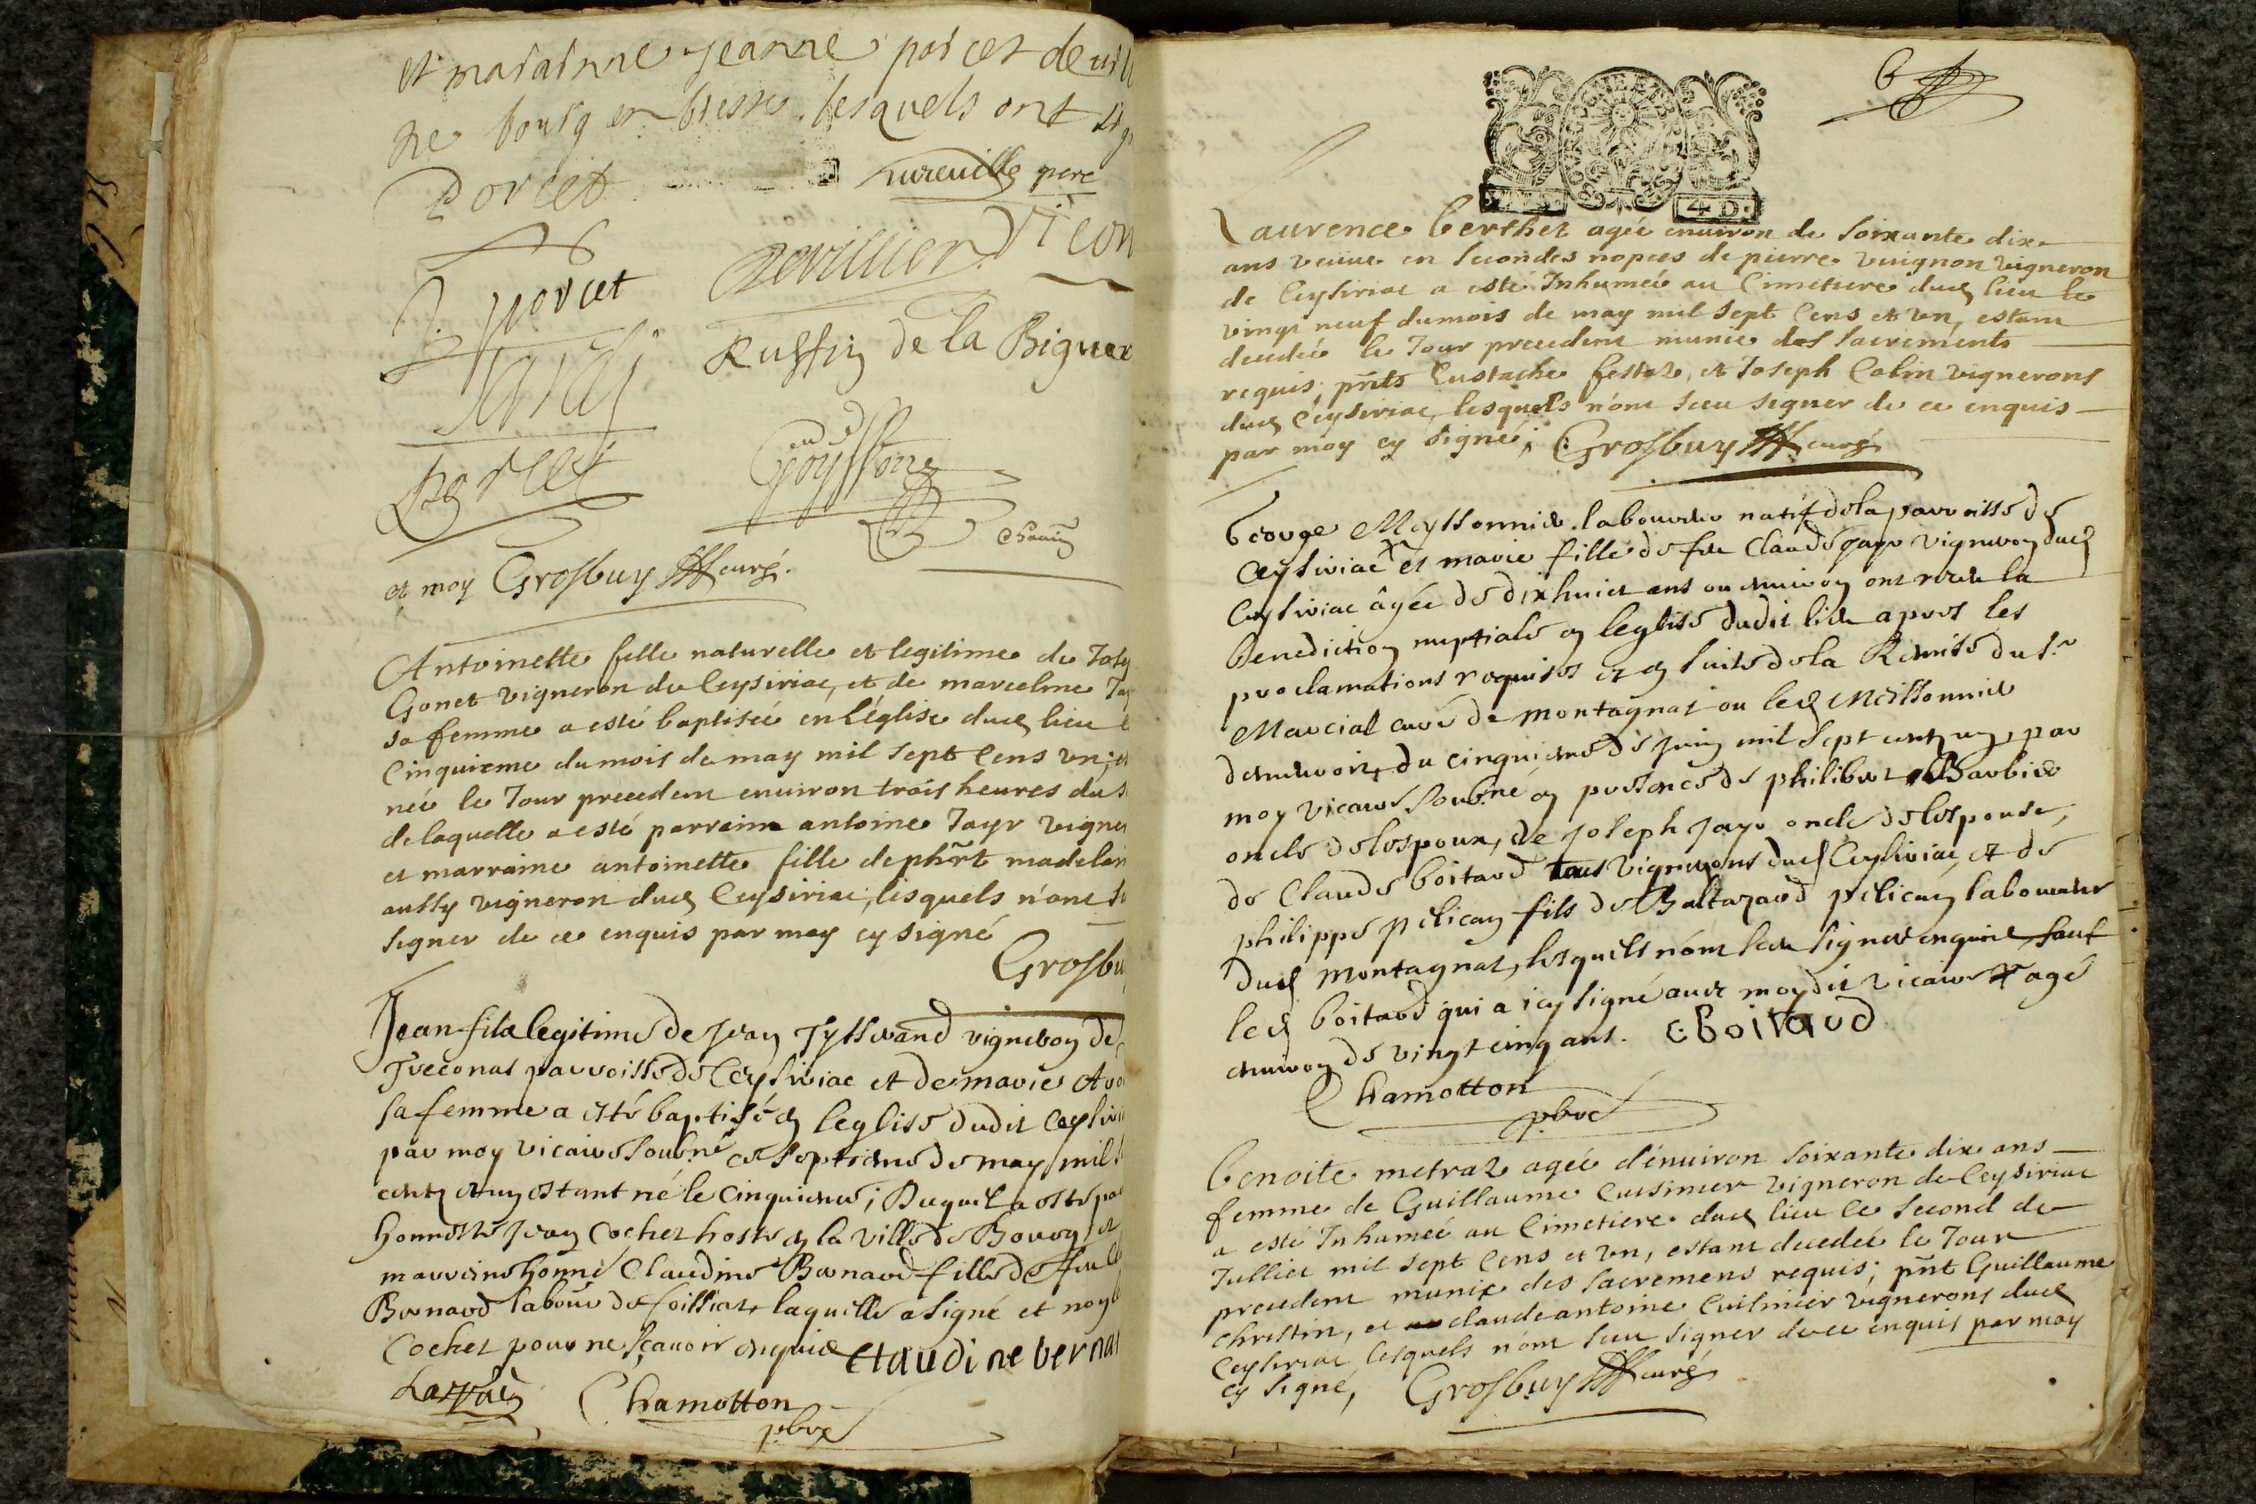 et maraine jeanne porcet de
ne bourg en bresse lesquels ont
Porcet
pere
J. porcet
de la
Porcet
et moy Grosbuy curé.
Antoinette fille naturelle et legitime de
Gonet vigneron de Ceysiriac, et de marceline
sa femme a esté baptisée en l'église dud lieu
Cinquieme du mois de may mil sept Cens un;
née le Jour precedent environ trois heures du
de laquelle a esté parrain antoine Jayr
et marraine antoinette fille de madelain
aussy vigneron dud Ceysiriac, lesquels n'ont
signer de ce enquis par moy cy signé
Jean fils legitime de Jean vigneron de
Treconas parroisse de Ceysiriac et de marie
sa femme a esté baptisé en leglise dudit
par moy vicaire soubné ce septieme de may mil
cents et un estant né le cinquieme; Duquel a esté
honneste Jean Cochet hoste en la ville de Bourg et
marreine honne Claudine Bernard fille de feu
Bernard labour de laquelle a signé et
Cochet pour ne sçavoir enquis Claudine bernar
Chamotton
pbre
6
4 D.
Laurence berthet agée environ de soixante dix
ans veuve en secondes nopces de pierre vuignon vigneron
de Ceysiriac a esté Inhumée au Cimetiere dud lieu le
vingt neuf du mois de may mil sept Cens et un, estant
decedée le Jour precedent munie des sacrements
requis; pñts Eustache festaz, et Joseph Colin vignerons
dud Ceysiriac, lesquels n'ont sceu signer de ce enquis
par moy cy signé; Grosbuy curé
George Meyssonnier laboureur natif de la parroisse de
Ceysiriac et marie fille de feu Claude Jayr vigneron dud
Ceysiriac âgée de dixhuict ans ou environ ont receu la
benediction nuptiale en leglise dudit lieu apres les
proclamations requises et en suite de la Remise du sr
Marcial curé de montagnat ou led Meissonnier
demeuroit, du cinquieme de juin mil sept cents un, par
moy vicaire soubné en presence de philibert Barbier
oncle de lespoux, de Joseph Jayr oncle de lespouse,
de Claude boitard tous vignerons dud Ceysiriac, et de
philippe pelican fils de Baltazard pelican laboureur
dud montagnat, lesquels n'ont sceu signer enquis sauf
led boitard qui a icy signé avec moydit vicaire agé
environ de vingt cinq ans. C boitard
Chamotton
pbre
benoite metraz agée d'environ soixante dix ans
femme de Guillaume Cuisinier vigneron de Ceysiriac
a esté Inhumée au Cimetiere dud lieu le second de
Julliet mil sept Cens et un, estant decedée le Jour
precedent munie des sacremens requis; pñt Guillaume
christin, et claude antoine Cuisinier vignerons dud
Ceysiriac, lesquels n'ont sceu signer de ce enquis par moy
cy signé, Grosbuy curé